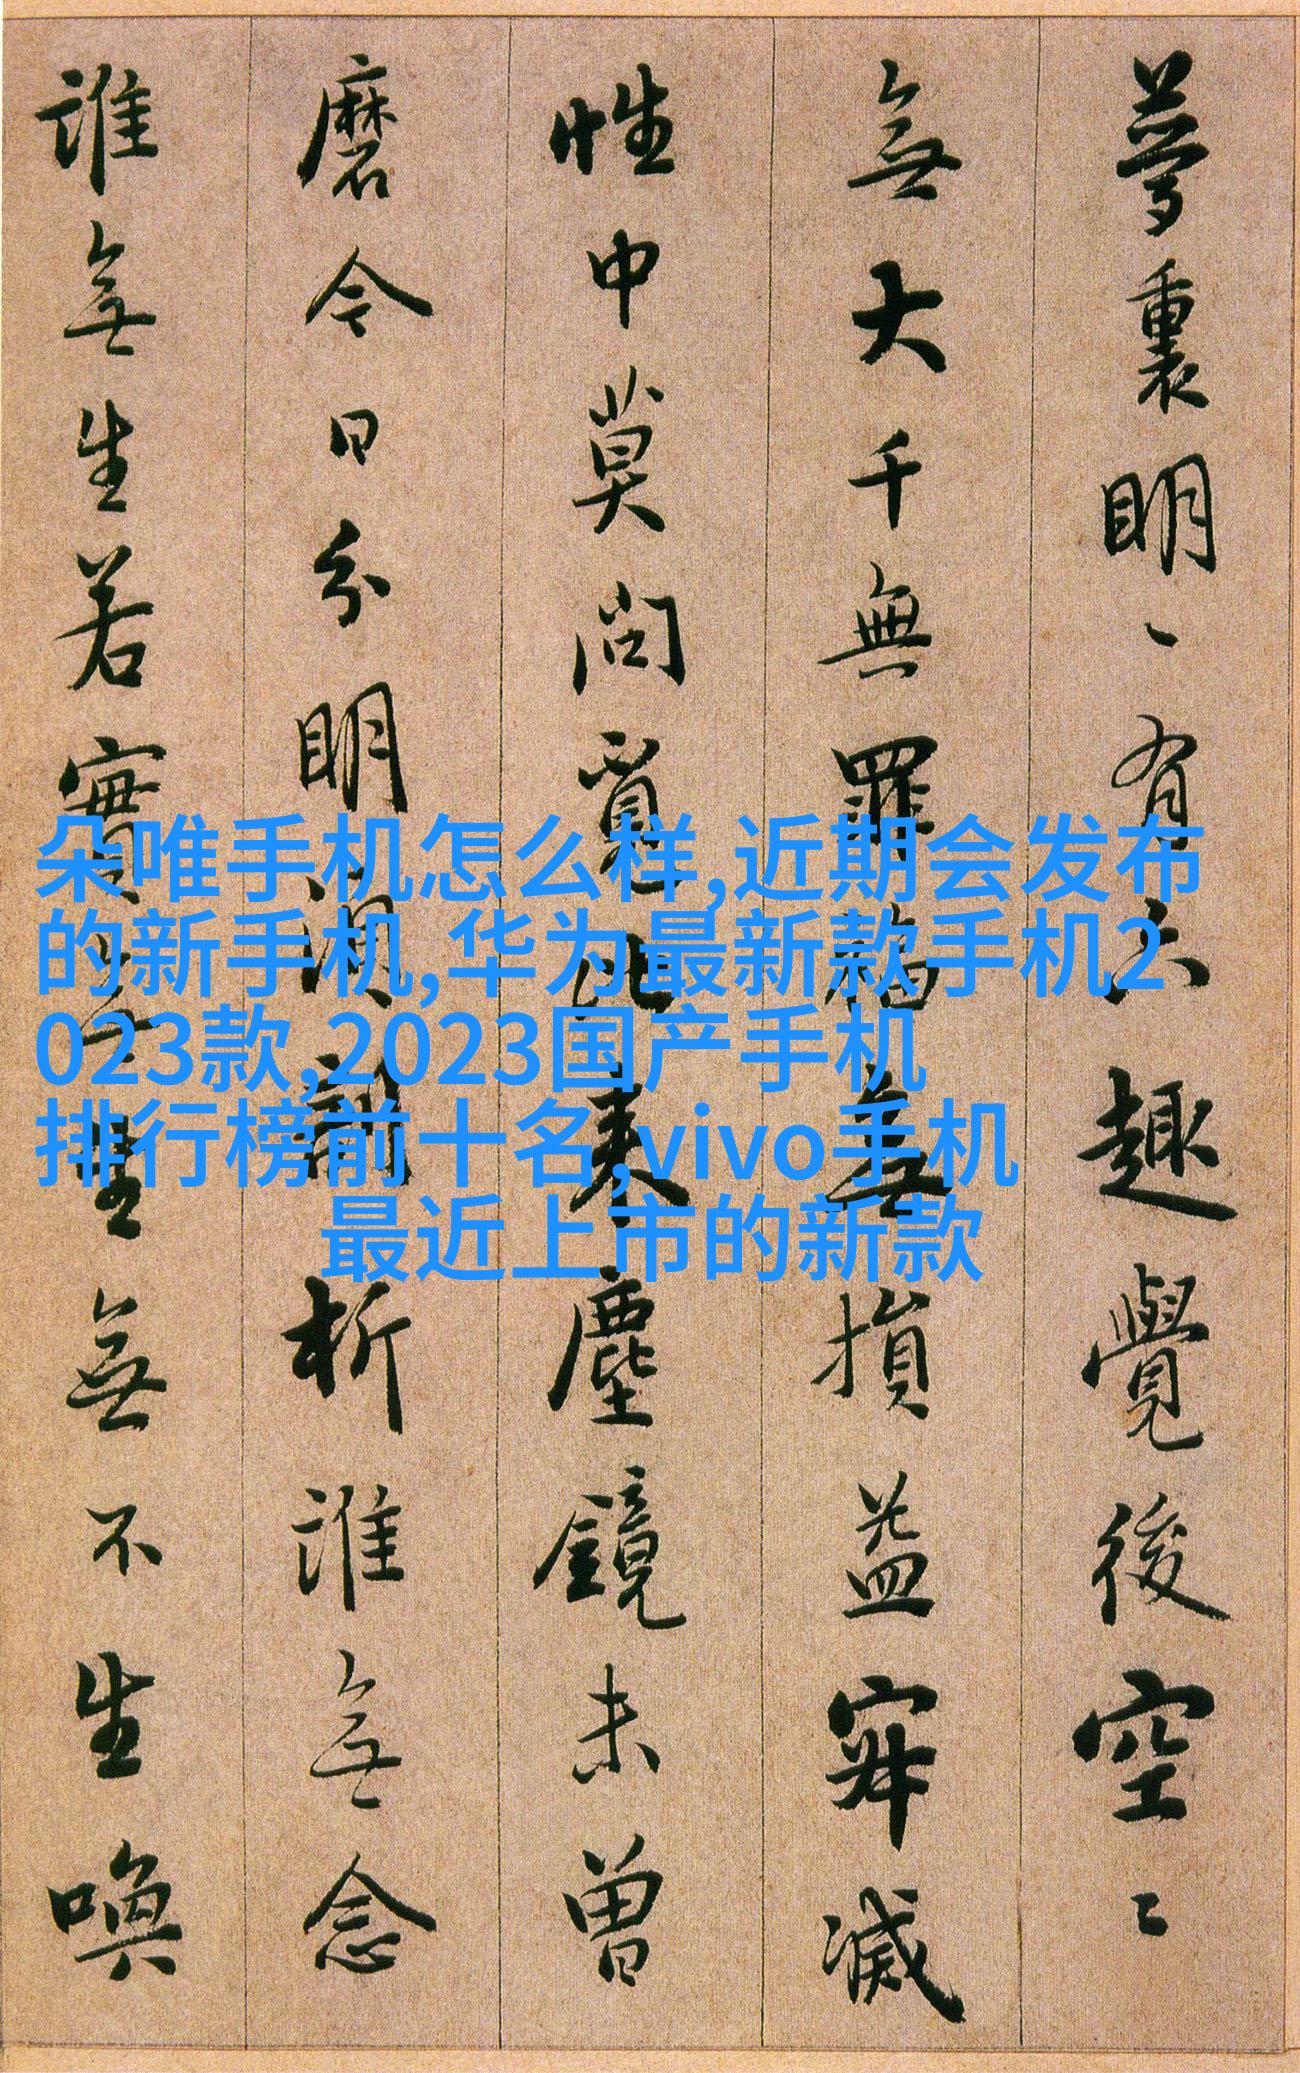 夢裏明〻有六趣覺後空〻
無大千無罪福無損益寂滅
性中莫問覓比來塵鏡未曾
磨今日分明須剖析誰無念
誰無生若實無生無不生喚
朵唯手机怎么样,近期会发布
的新手机,华为最新款手机2
023款,2023国产手机
排行榜前十名,vivo手机
最近上市的新款